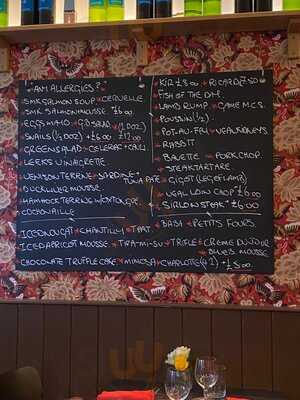 "AM ALLERGIES?"
SMK SALMON SOUP • CERVELLE
SMK SALMON MOUSSE. £6.00
EGGS MAYO • (½ DOZ)
SNAILS (½ DOZ) • £6.00 • £12.00
GREEN SALAD • CELERIAC • CAUL
LEEKS VINAIGRETTE
VENISON TERRINE • SARDINE +
TUNA PATE
DUCK LIVER MOUSSE.
HAM HOCK TERRINE W/ONION, GPE
COCHONAILLE
KIR £8.00 • RICARD £7.50
FISH OF THE DAY.
LAMB RUMP • GAME M.C.S.
POUSSIN (½).
POT-AU-FEU • VEAL KIDNEYS
RABBIT
BAVETTE • PORK CHOP.
STEAK TARTARE
GIGOT (LEG OF LAMB)
VEAL LOIN CHOP £6.00
SIRLOIN STEAK • £6.00
ICED NOUGAT • CHANTILLY • TART. • BABA • PETITS FOURS.
ICED APRICOT MOUSSE • TIRA-MI-SU • TRIFLE • CREME DU JOUR
MOUSSE
CHOCOLATE TRUFFLE CAKE. • MIMOSA • CHARLOTTE (+1) • £8.00.